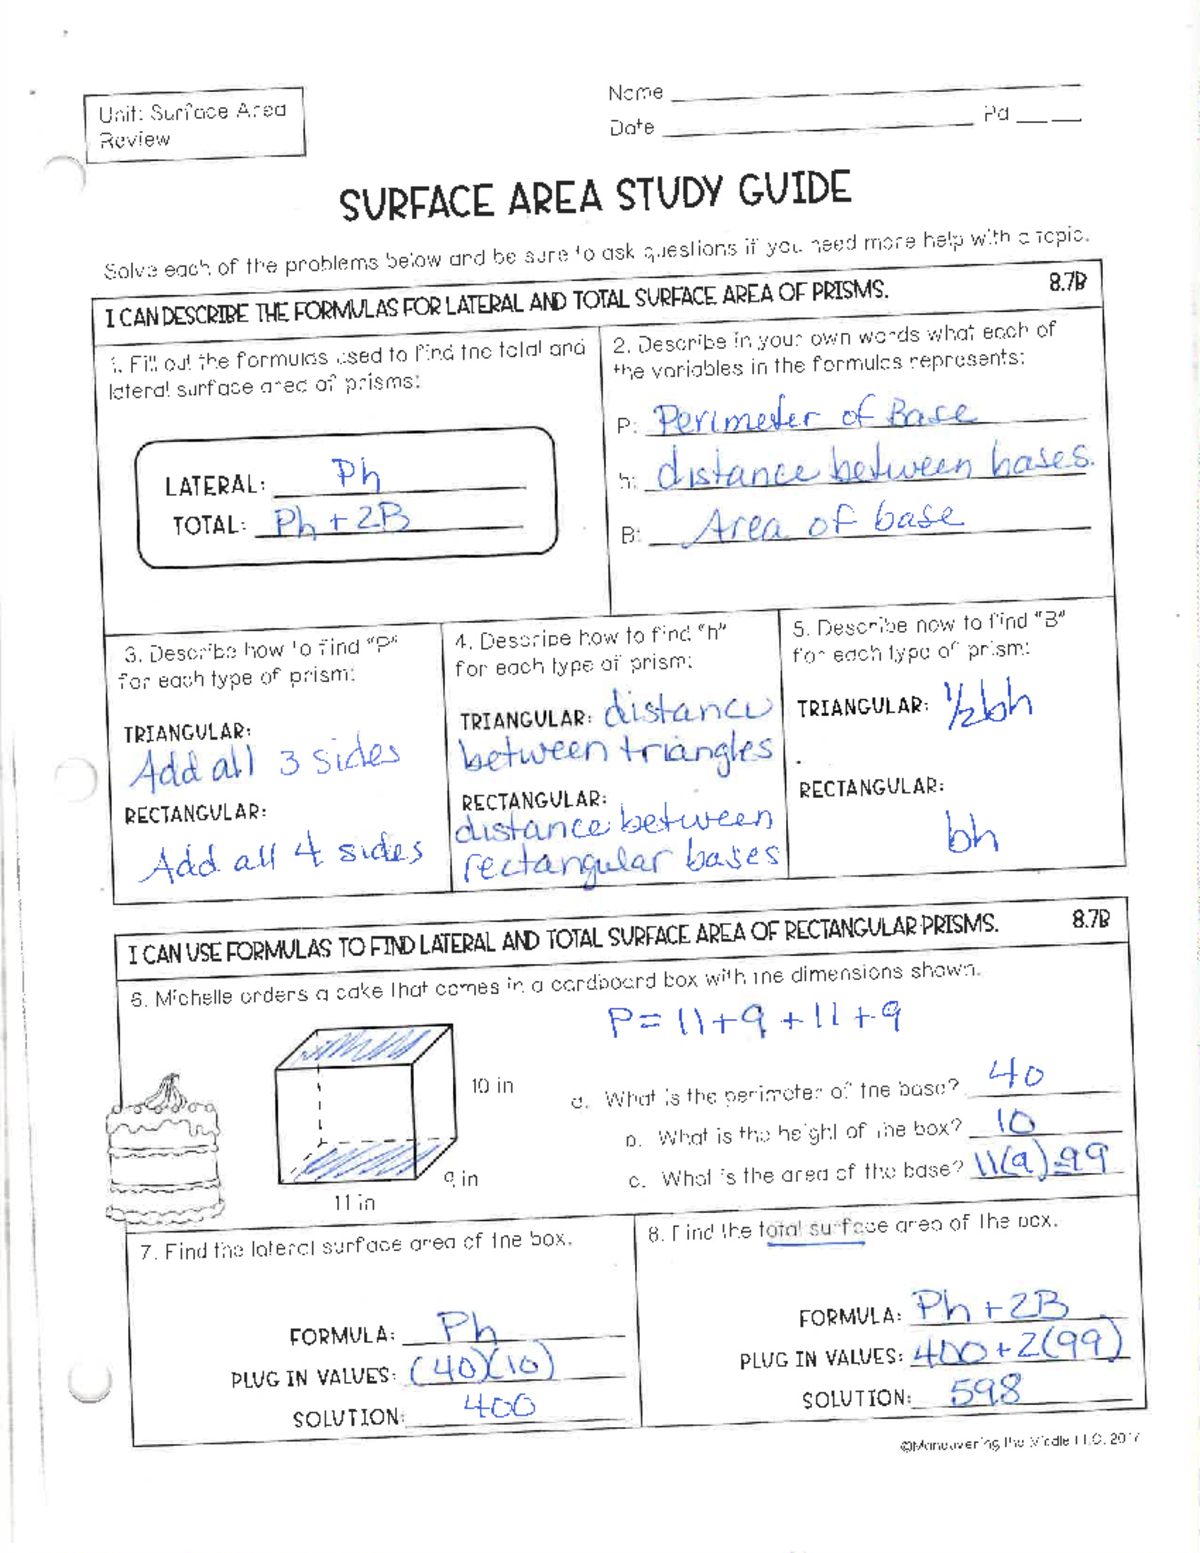 Unit: Surface Area
Review
Name
Date
Pd
SURFACE AREA STUDY GUIDE
Solve each of the problems below and be sure to ask questions if you need more help with a topic.
I CAN DESCRIBE THE FORMULAS FOR LATERAL AND TOTAL SURFACE AREA OF PRISMS. 8.7B
1. Fill out the formulas used to find the total and
lateral surface area of prisms:
LATERAL: Ph
TOTAL: Ph + 2B
2. Describe in your own words what each of
the variables in the formulas represents:
P: Perimeter of Base
h: distance between bases.
B: Area of base
3. Describe how to find "P"
for each type of prism:
TRIANGULAR:
Add all 3 sides
RECTANGULAR:
Add all 4 sides
4. Describe how to find "h"
for each type of prism:
TRIANGULAR: distance
between triangles
RECTANGULAR:
distance between
rectangular bases
5. Describe how to find "B"
for each type of prism:
TRIANGULAR: 1/2bh
RECTANGULAR:
bh
I CAN USE FORMULAS TO FIND LATERAL AND TOTAL SURFACE AREA OF RECTANGULAR PRISMS. 8.7B
6. Michelle orders a cake that comes in a cardboard box with the dimensions shown.
P = 11+9+11+9
10 in
9 in
11 in
a. What is the perimeter of the base? 40
b. What is the height of the box? 10
c. What is the area of the base? 11(9)=99
7. Find the lateral surface area of the box.
FORMULA: Ph
PLUG IN VALUES: (40)(10)
SOLUTION: 400
8. Find the total surface area of the box.
FORMULA: Ph + 2B
PLUG IN VALUES: 400+2(99)
SOLUTION: 598
©Maneuvering the Middle LLC, 2017